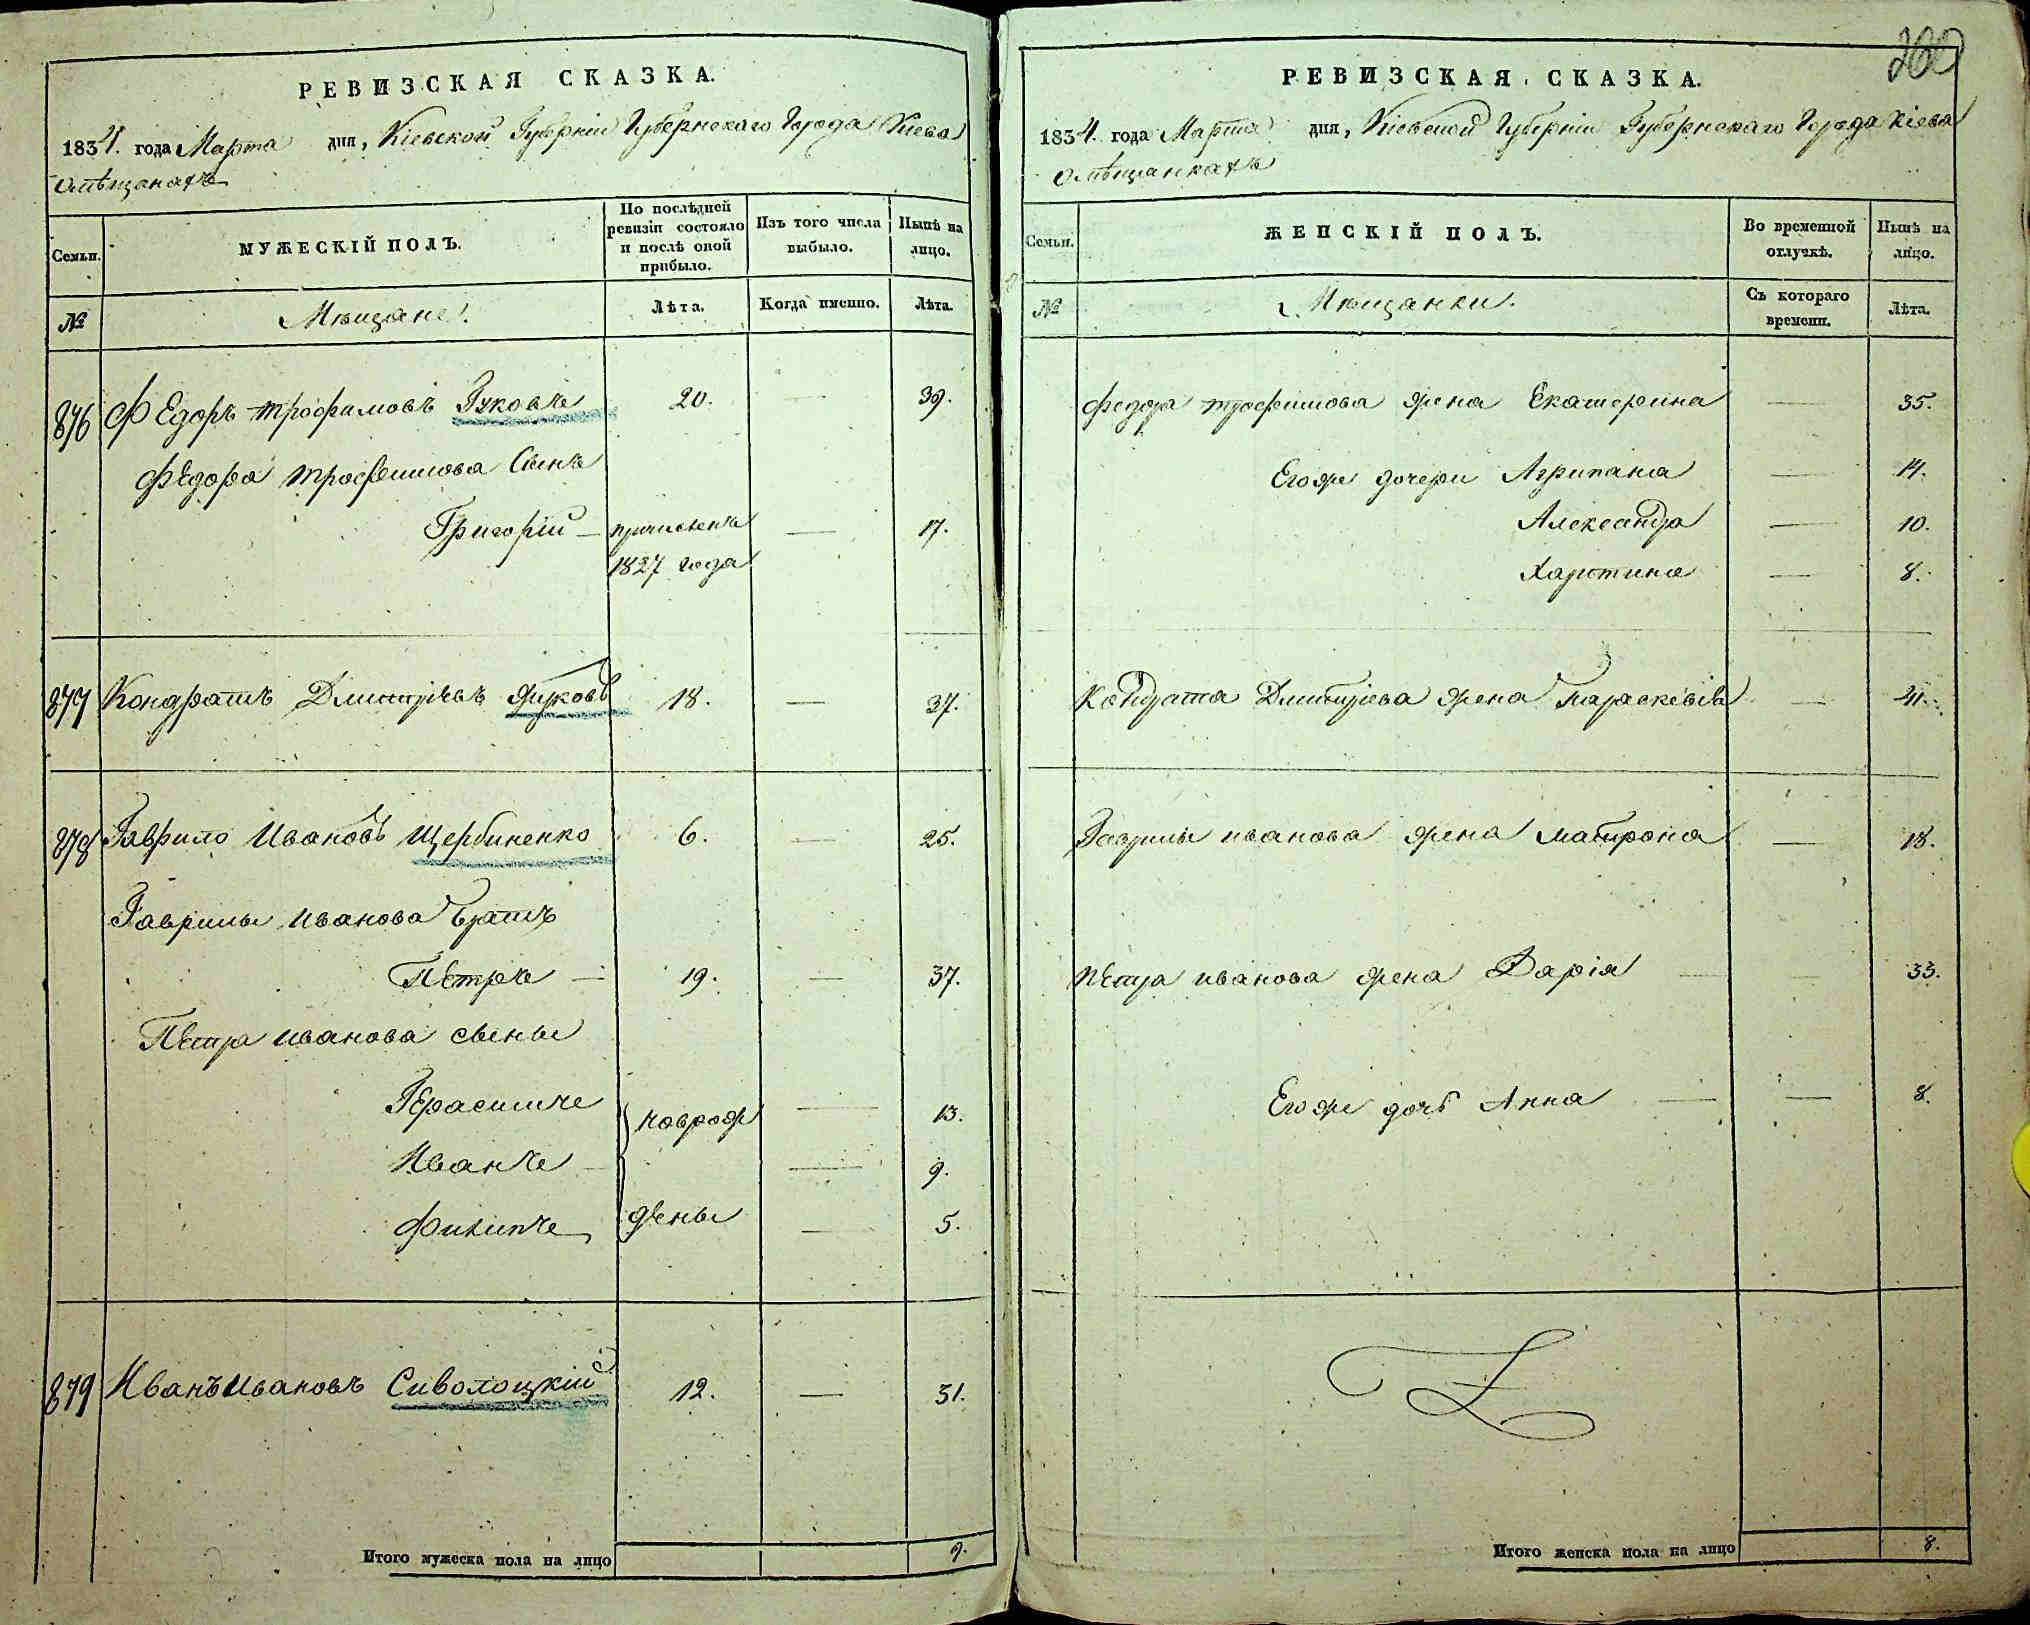 РЕВИЗСКАЯ СКАЗКА.
1834. года Марта дня, Кіевской Губерніи Губернскаго Города Кіева
омѣщанахъ
Семьи.
МУЖЕСКІЙ ПОЛЪ.
По послѣдней ревизіи состояло и послѣ оной прибыло.
Изъ того числа выбыло.
Нынѣ на лицо.
№
Мѣщане.
Лѣта.
Когда именно.
Лѣта.
876 Федоръ трофимовъ Гуковъ 20. — 39.
Федора трофимова Сынъ
Григорій — причисленъ — 17.
1827 года
877 Кондратъ Дмитріевъ Жуковъ 18. — 37.
878 Гаврило Ивановъ Щербиненко 6. — 25.
Гаврилы Иванова братъ
Петръ — 19. — 37.
Петра Иванова сыны
Герасимъ новорож — 13.
Иванъ — — 9.
Филипъ дены — 5.
879 Иванъ Ивановъ Сиволоцкій 12. — 31.
Итого мужеска пола на лицо 9.
260
РЕВИЗСКАЯ СКАЗКА.
1834. года Марта дня, Кіевской Губерніи Губернскаго Города Кіева
омѣщанкахъ
Семьи.
ЖЕНСКІЙ ПОЛЪ.
Во временной отлучкѣ.
Нынѣ на лицо.
№
Мѣщанки.
Съ котораго времени.
Лѣта.
Федора трофимова жена Екатерина — 35.
Егоже дочери Агрипина — 14.
Александра — 10.
Харитина — 8.
Кондрата Дмитріева жена Параскевія —
Гаврилы иванова жена Матрона — 18.
Петра иванова жена Дарія — 33.
Егоже дочь Анна — — 8.
Итого женска пола на лицо 8.